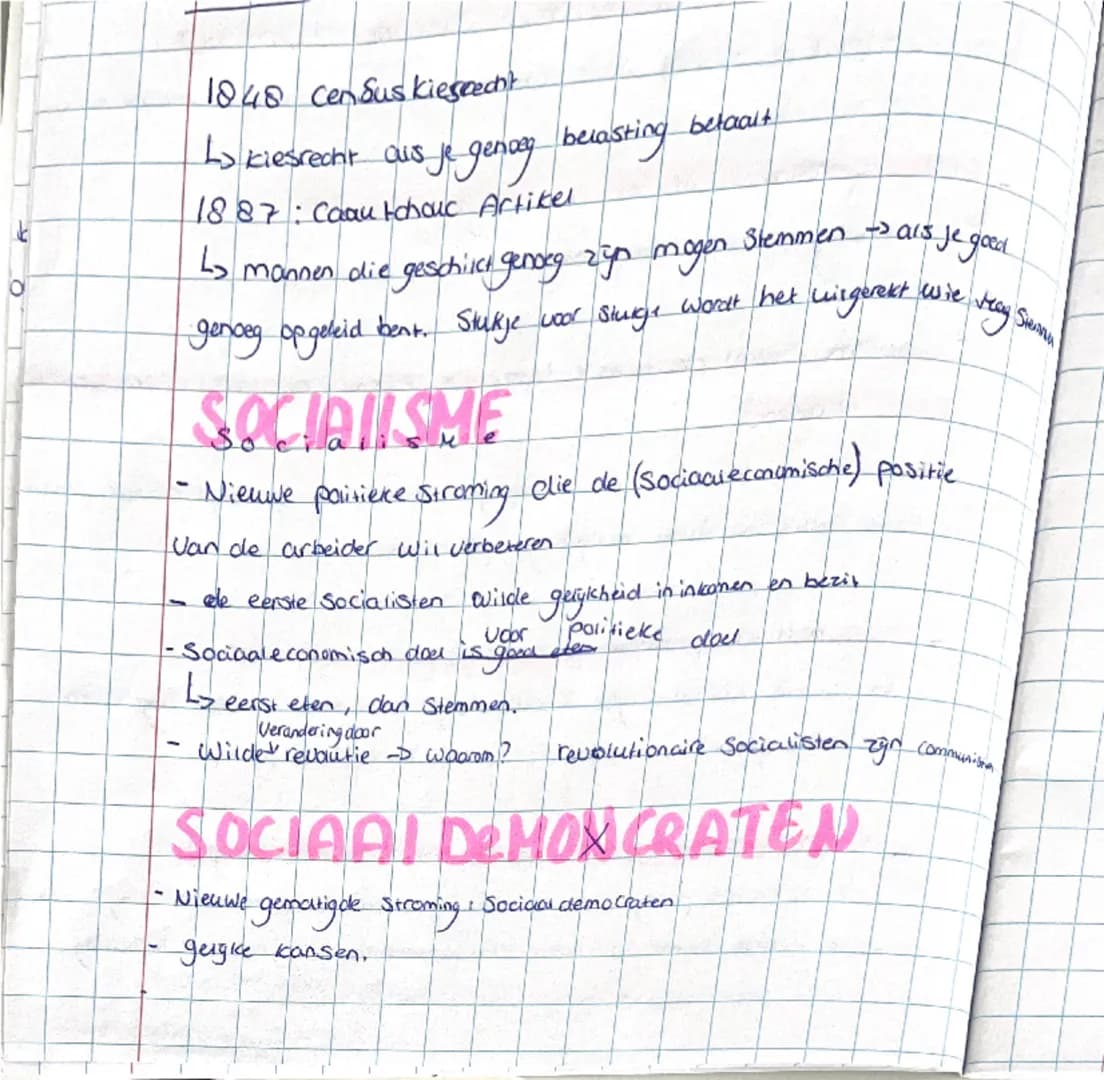 1848 censuskiesrecht
↳ kiesrecht als je genoeg belasting betaalt
1887: Caautchouc Artikel
↳ mannen die geschikt genoeg zijn mogen stemmen → als je goed
genoeg opgeleid bent. Stukje voor stukje wordt het uitgerekt wie mag stemmen
SOCIAlISME
Socialisme
- Nieuwe politieke stroming die de (sociaaleconomische) positie
van de arbeider wil verbeteren
- de eerste socialisten wilde gelijkheid in inkomen en bezit
- Sociaaleconomisch doel is voor politieke doel
↳ eerst eten, dan stemmen.
- Wilde verandering door revolutie → waarom? revolutionaire socialisten zijn communisten
SOCIAAl DeMOCRATEN
- Nieuwe gematigde stroming: Sociaaldemocraten
- gelijke kansen.